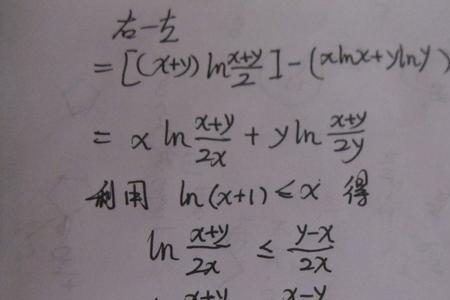 右-左
= [(x+y) ln (x+y)/2] - (xlnx+ylny)
= x ln (x+y)/2x + y ln (x+y)/2y
利用 ln(x+1) ≤ x 得
ln (x+y)/2x ≤ (y-x)/2x
x+y x-y